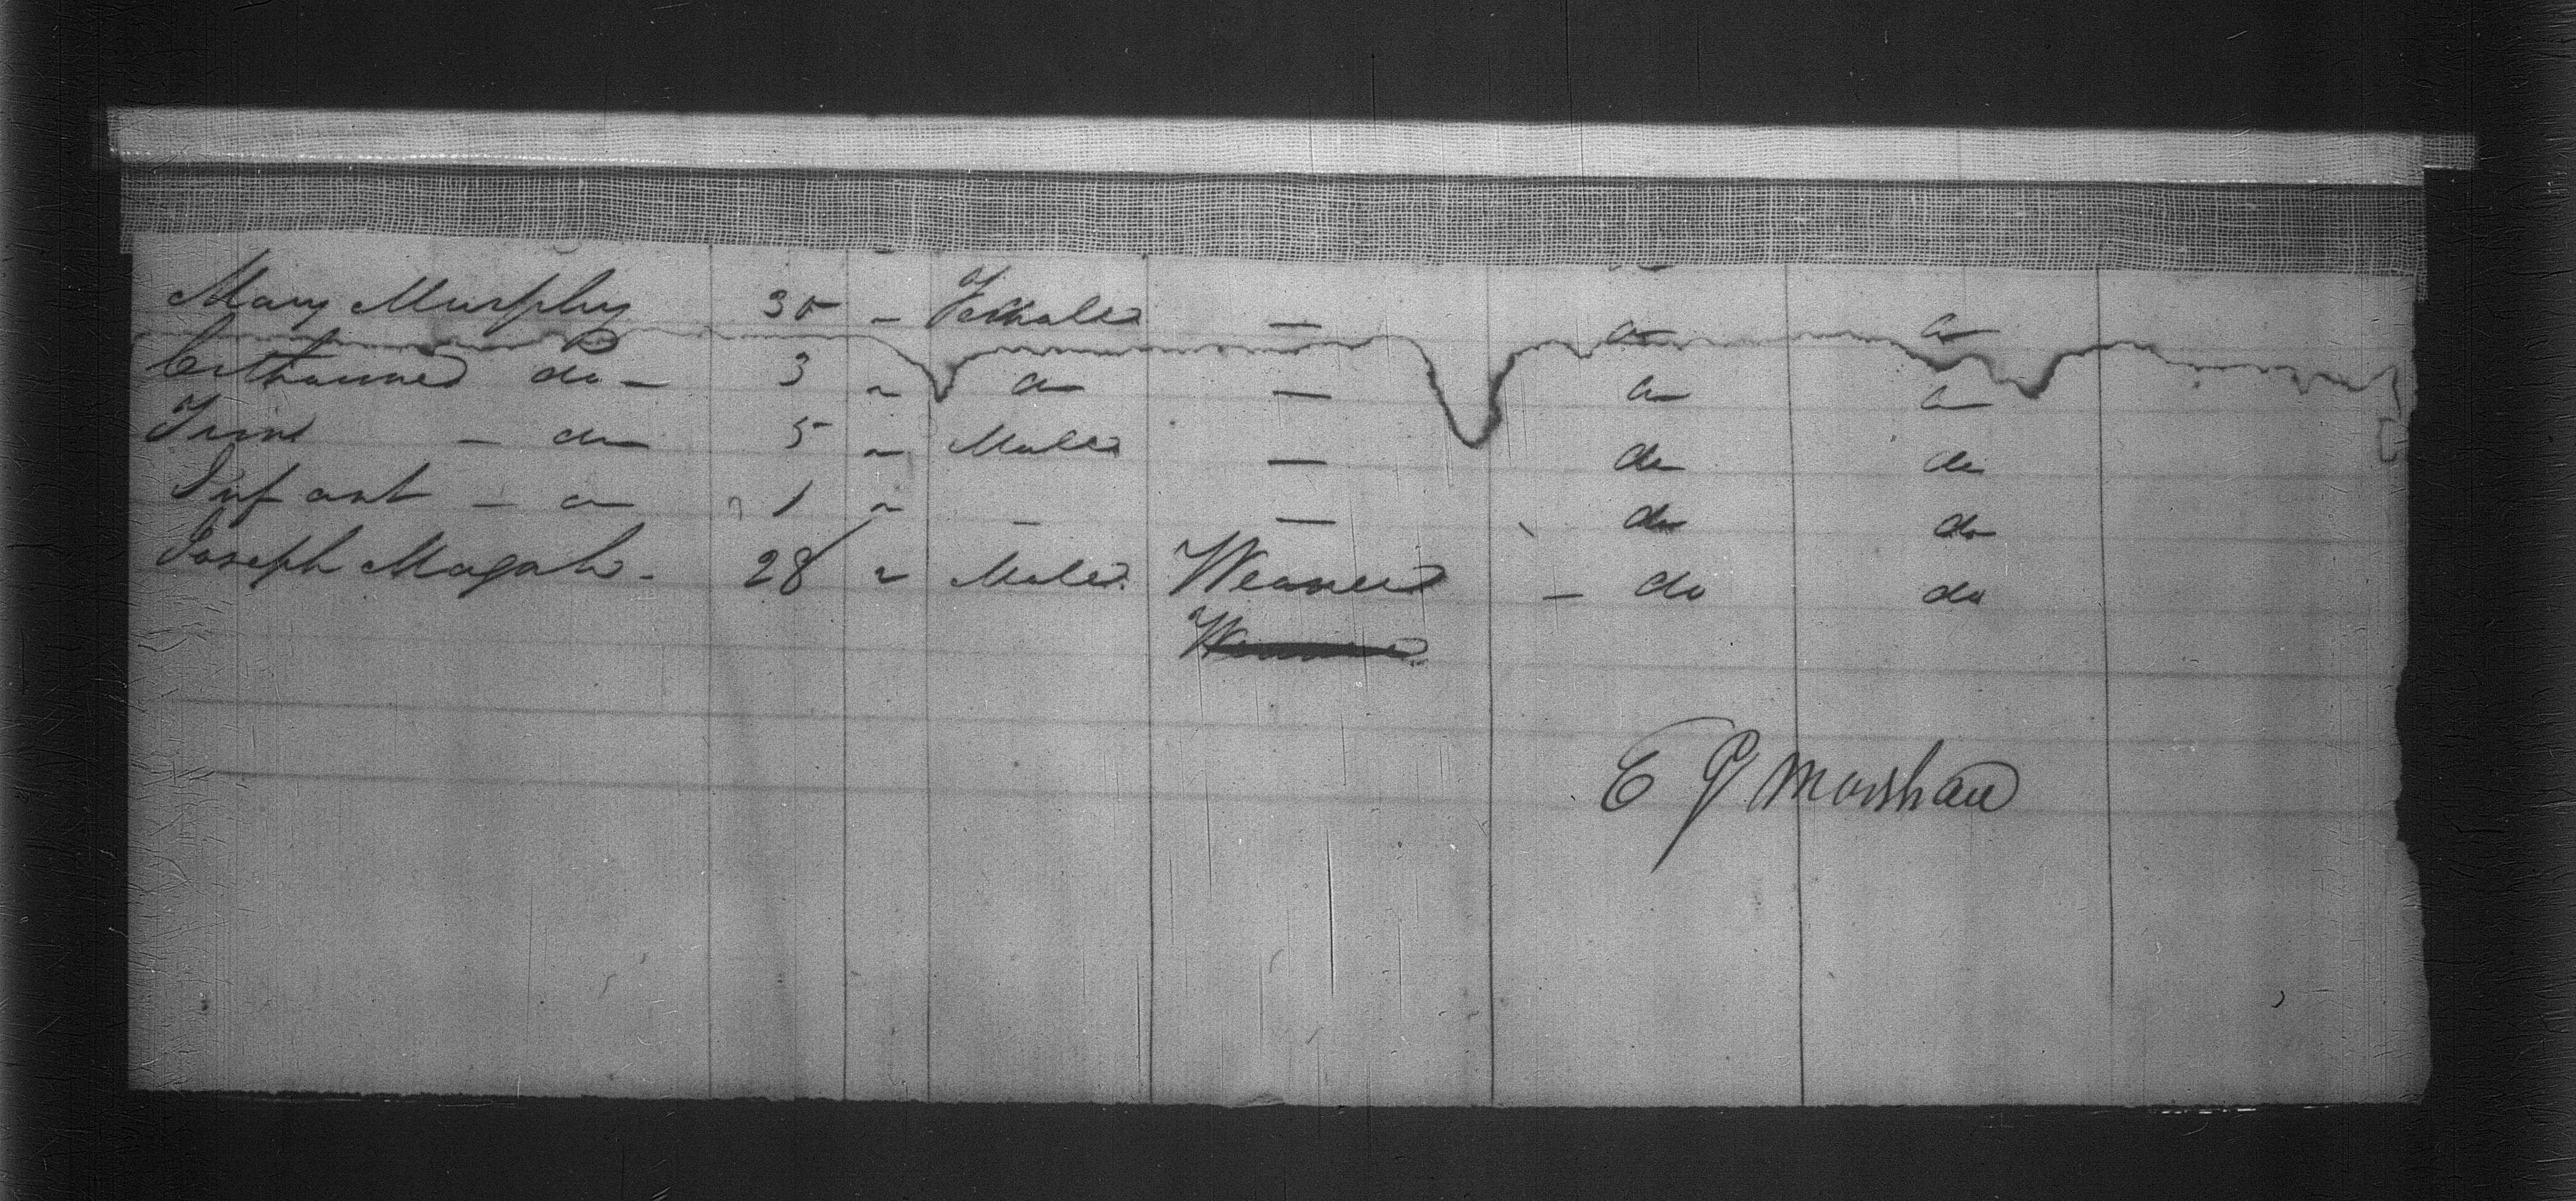 Mary Murphy 35 - Female — do do
Catharine do - 3 " do — do do
- do 5 " Male — do do
Infant - do 1 " - — do do
Joseph Magah - 28 " Male Weaver - do do
Weaver
E P Marshall